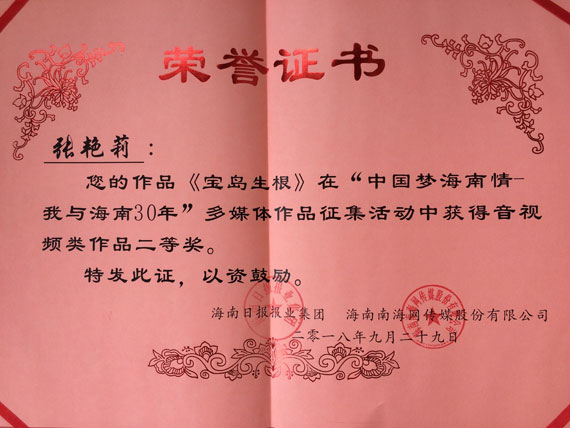 荣誉证书
张艳莉：
您的作品《宝岛生根》在“中国梦海南情-
我与海南30年”多媒体作品征集活动中获得音视
频类作品二等奖。
特发此证，以资鼓励。
海南日报报业集团 海南南海网传媒股份有限公司
二零一八年九月二十九日